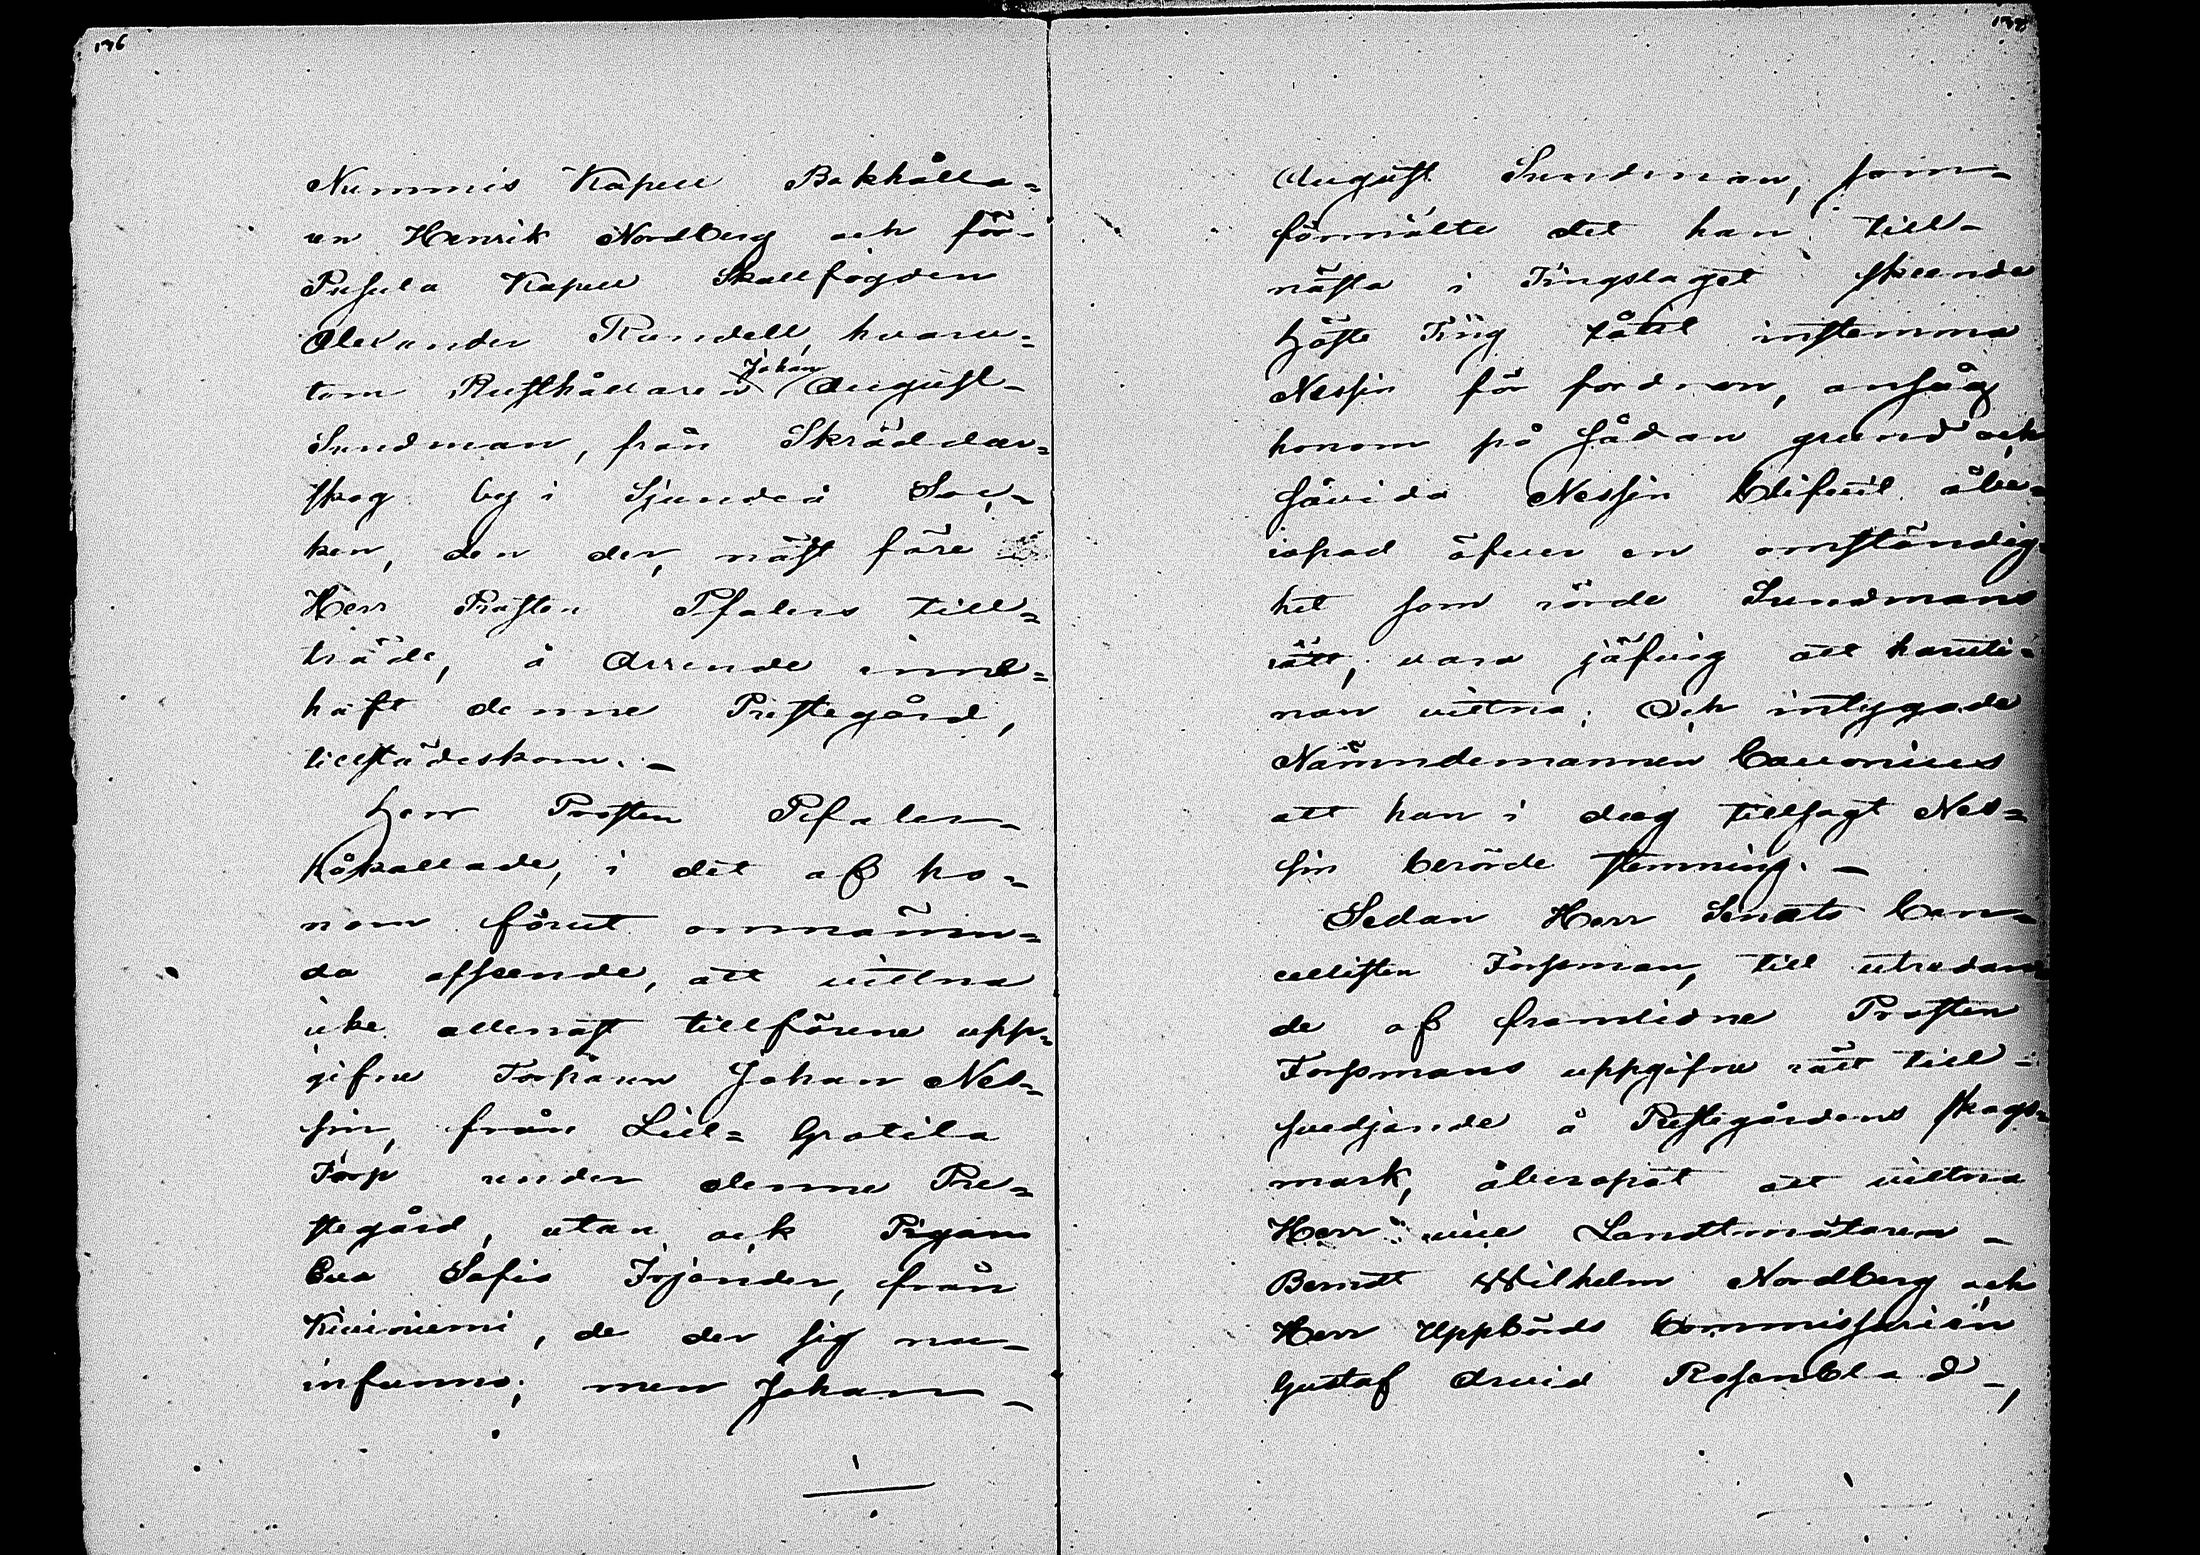 176
Nummis Kapell Bokhålla=
ren Henrik Nordberg och för-
Pusula Kapell Skallfogden
Alexander Rundell, hvaru=
tom Rusthållaren Johan August-
Sundman, från Skräddar=
skog by i Sjundeå Soc=
ken, den der, näst före
Herr Prosten Pfalers till=
träde, å Arrende inne=
haft denne Prestegård,
tillstädeskom. -
Herr Prosten Pfaler-
påkallade, i det af ho=
nom förut omnämn=
da afseende, att vittna
icke allenast tillförene upp=
gifne Torparen Johan Nes=
sin, från Liel= Gratila
Torp under denne Pre=
stegård, utan ock Pigan
Eva Sofia Irjander, från
Kiviniemi, de der sig nu-
infunno; men Johan -
177
August Sundman, som-
förmälte det han till-
nästa i Tingslaget skeende
Höste Ting låtit instemma
Nessin för fordran, ansåg
honom på sådan grund och
såvida Nessin blifvit åbe=
ropad öfver en omständig=
het som rörde Sundmans
rätt, vara jäfvig att häruti=
nan vittna; Och intygade
Nämndemannen Cavonius
att han i dag tillsagt Nes=
sin berörde stemning. -
Sedan Herr Senats Can=
cellisten Forssman, till utredan=
de af framlidne Prosten
Forssmans uppgifne rätt till-
svedjande å Prestegårdens skogs=
mark, åberopat att vittna
Herr vice Landtmätaren -
Berndt Wilhelm Nordberg och
Herr Uppbörds Commissarien
Gustaf Arvid Rosenblad -,